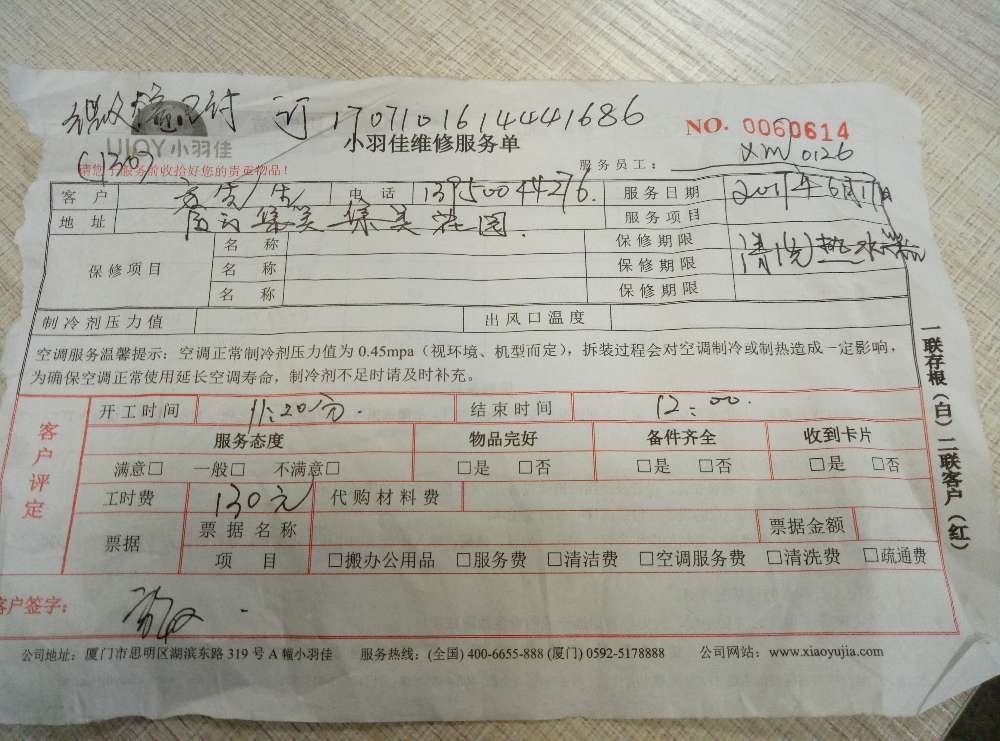 已付 订 170710161444441686
UJOY 小羽佳
小羽佳维修服务单
NO. 0060614
(130)
请您于服务前收拾好您的贵重物品!
服务员工: XM0126
客户 先生 电话 13950044276. 服务日期 2017年6月17日
地址 集美集美花园. 服务项目 清洗热水器
保修项目 名称 保修期限
名称 保修期限
名称 保修期限
制冷剂压力值 出风口温度
空调服务温馨提示:空调正常制冷剂压力值为 0.45mpa(视环境、机型而定),拆装过程会对空调制冷或制热造成一定影响,
为确保空调正常使用延长空调寿命,制冷剂不足时请及时补充。
开工时间 11:20分. 结束时间 12:00.
客户评定
服务态度 物品完好 备件齐全 收到卡片
满意□ 一般□ 不满意□ □是 □否 □是 □否 □是 □否
工时费 130元 代购材料费
票据 票据名称 票据金额
项目 □搬办公用品 □服务费 □清洁费 □空调服务费 □清洗费 □疏通费
客户签字:
公司地址:厦门市思明区湖滨东路 319 号 A 幢小羽佳 服务热线:(全国) 400-6655-888 (厦门) 0592-5178888 公司网站:www.xiaoyujia.com
一联存根(白)二联客户(红)